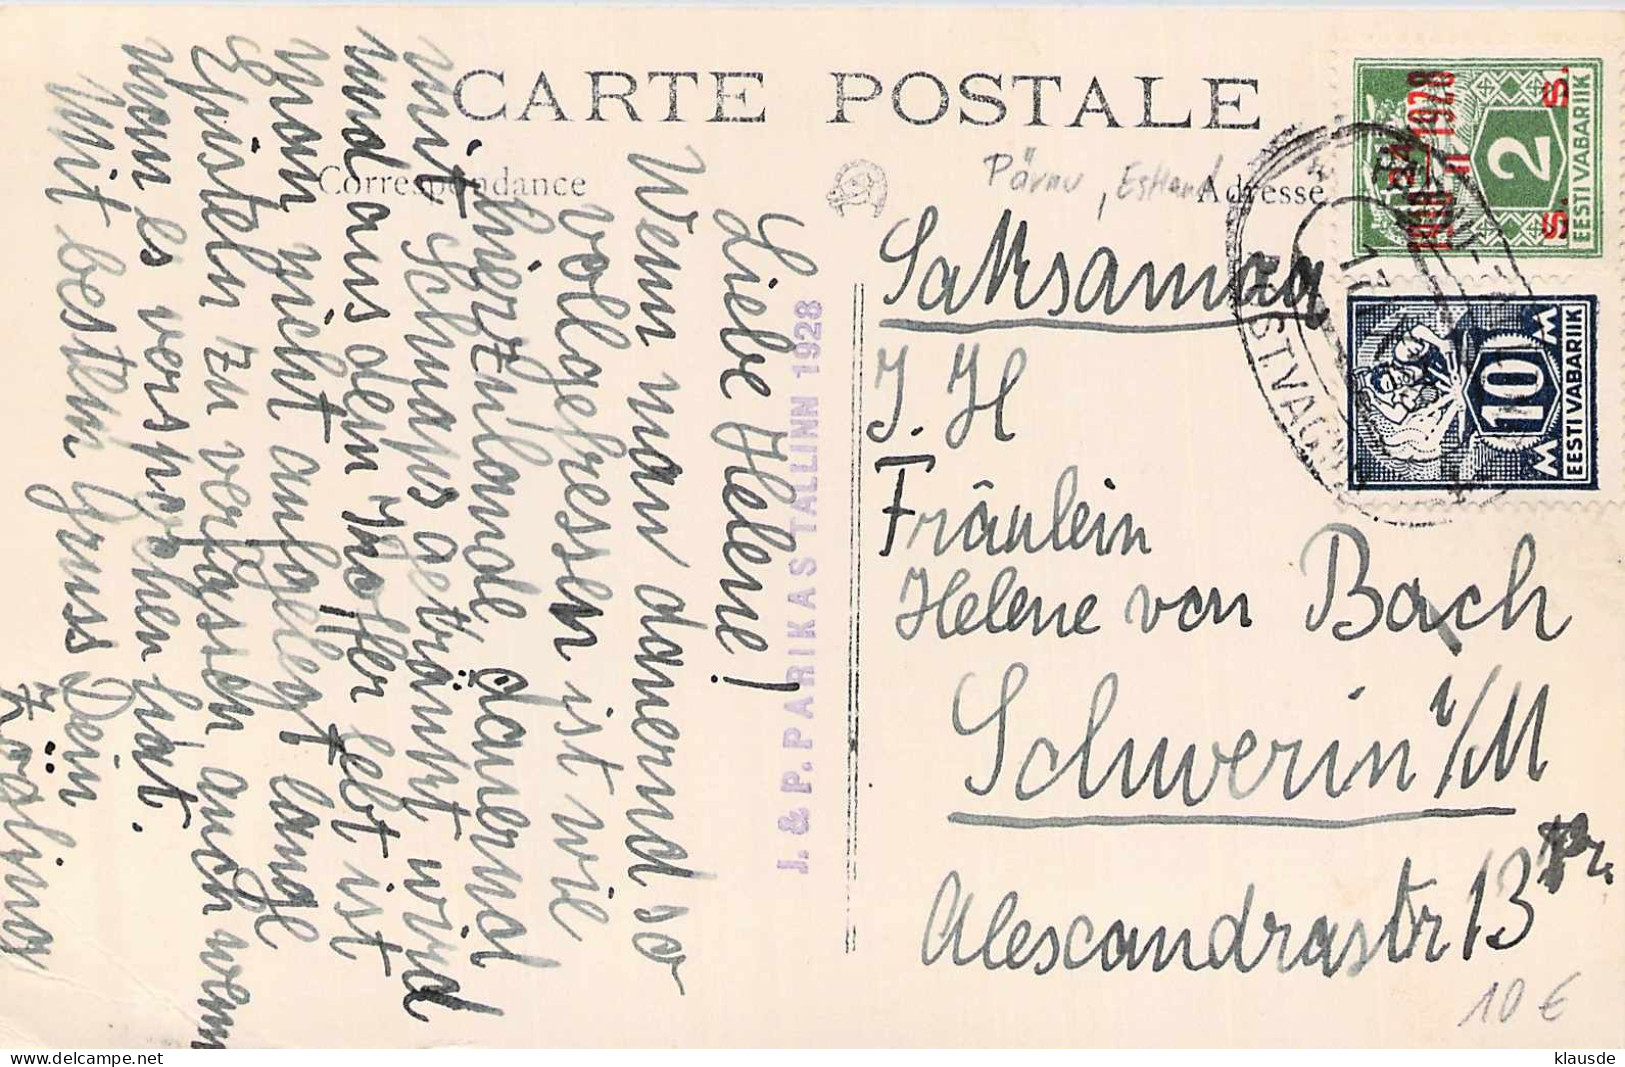 CARTE POSTALE
Correspondance
Adresse
Pärnu, Estland
Liebe Helene!
Wenn man dauernd so
vollgefressen ist wie
hierzulande, dauernd
mit Schnaps getränkt wird
und aus dem Koffer lebt ist
man nicht aufgelegt lange
Episteln zu verfassen auch wenn
man es versprochen hat.
Mit bestem Gruss Dein
J. & P. PARIKAS TALLINN 1928
Saksamaa
I. H
Fräulein
Helene von Bach
Schwerin i/M
Alexandrastr 13
10 €
1918 24/II 1928
S. S.
2
EESTI VABARIIK
10
M M
EESTI VABARIIK
POSTVAGUN
17
klausde